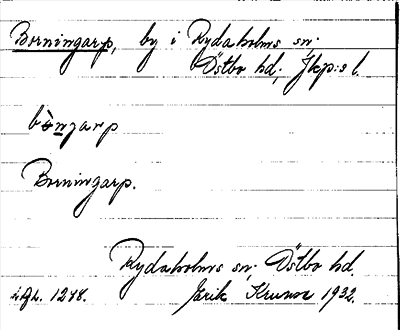 Borningarp, by i Rydaholms sn;
Östbo hd, Jkp:s l.
bo̖ngarp
Borningarp.
Rydaholms sn; Östbo hd.
i.gh. 1278. Erik Krunor 1932.